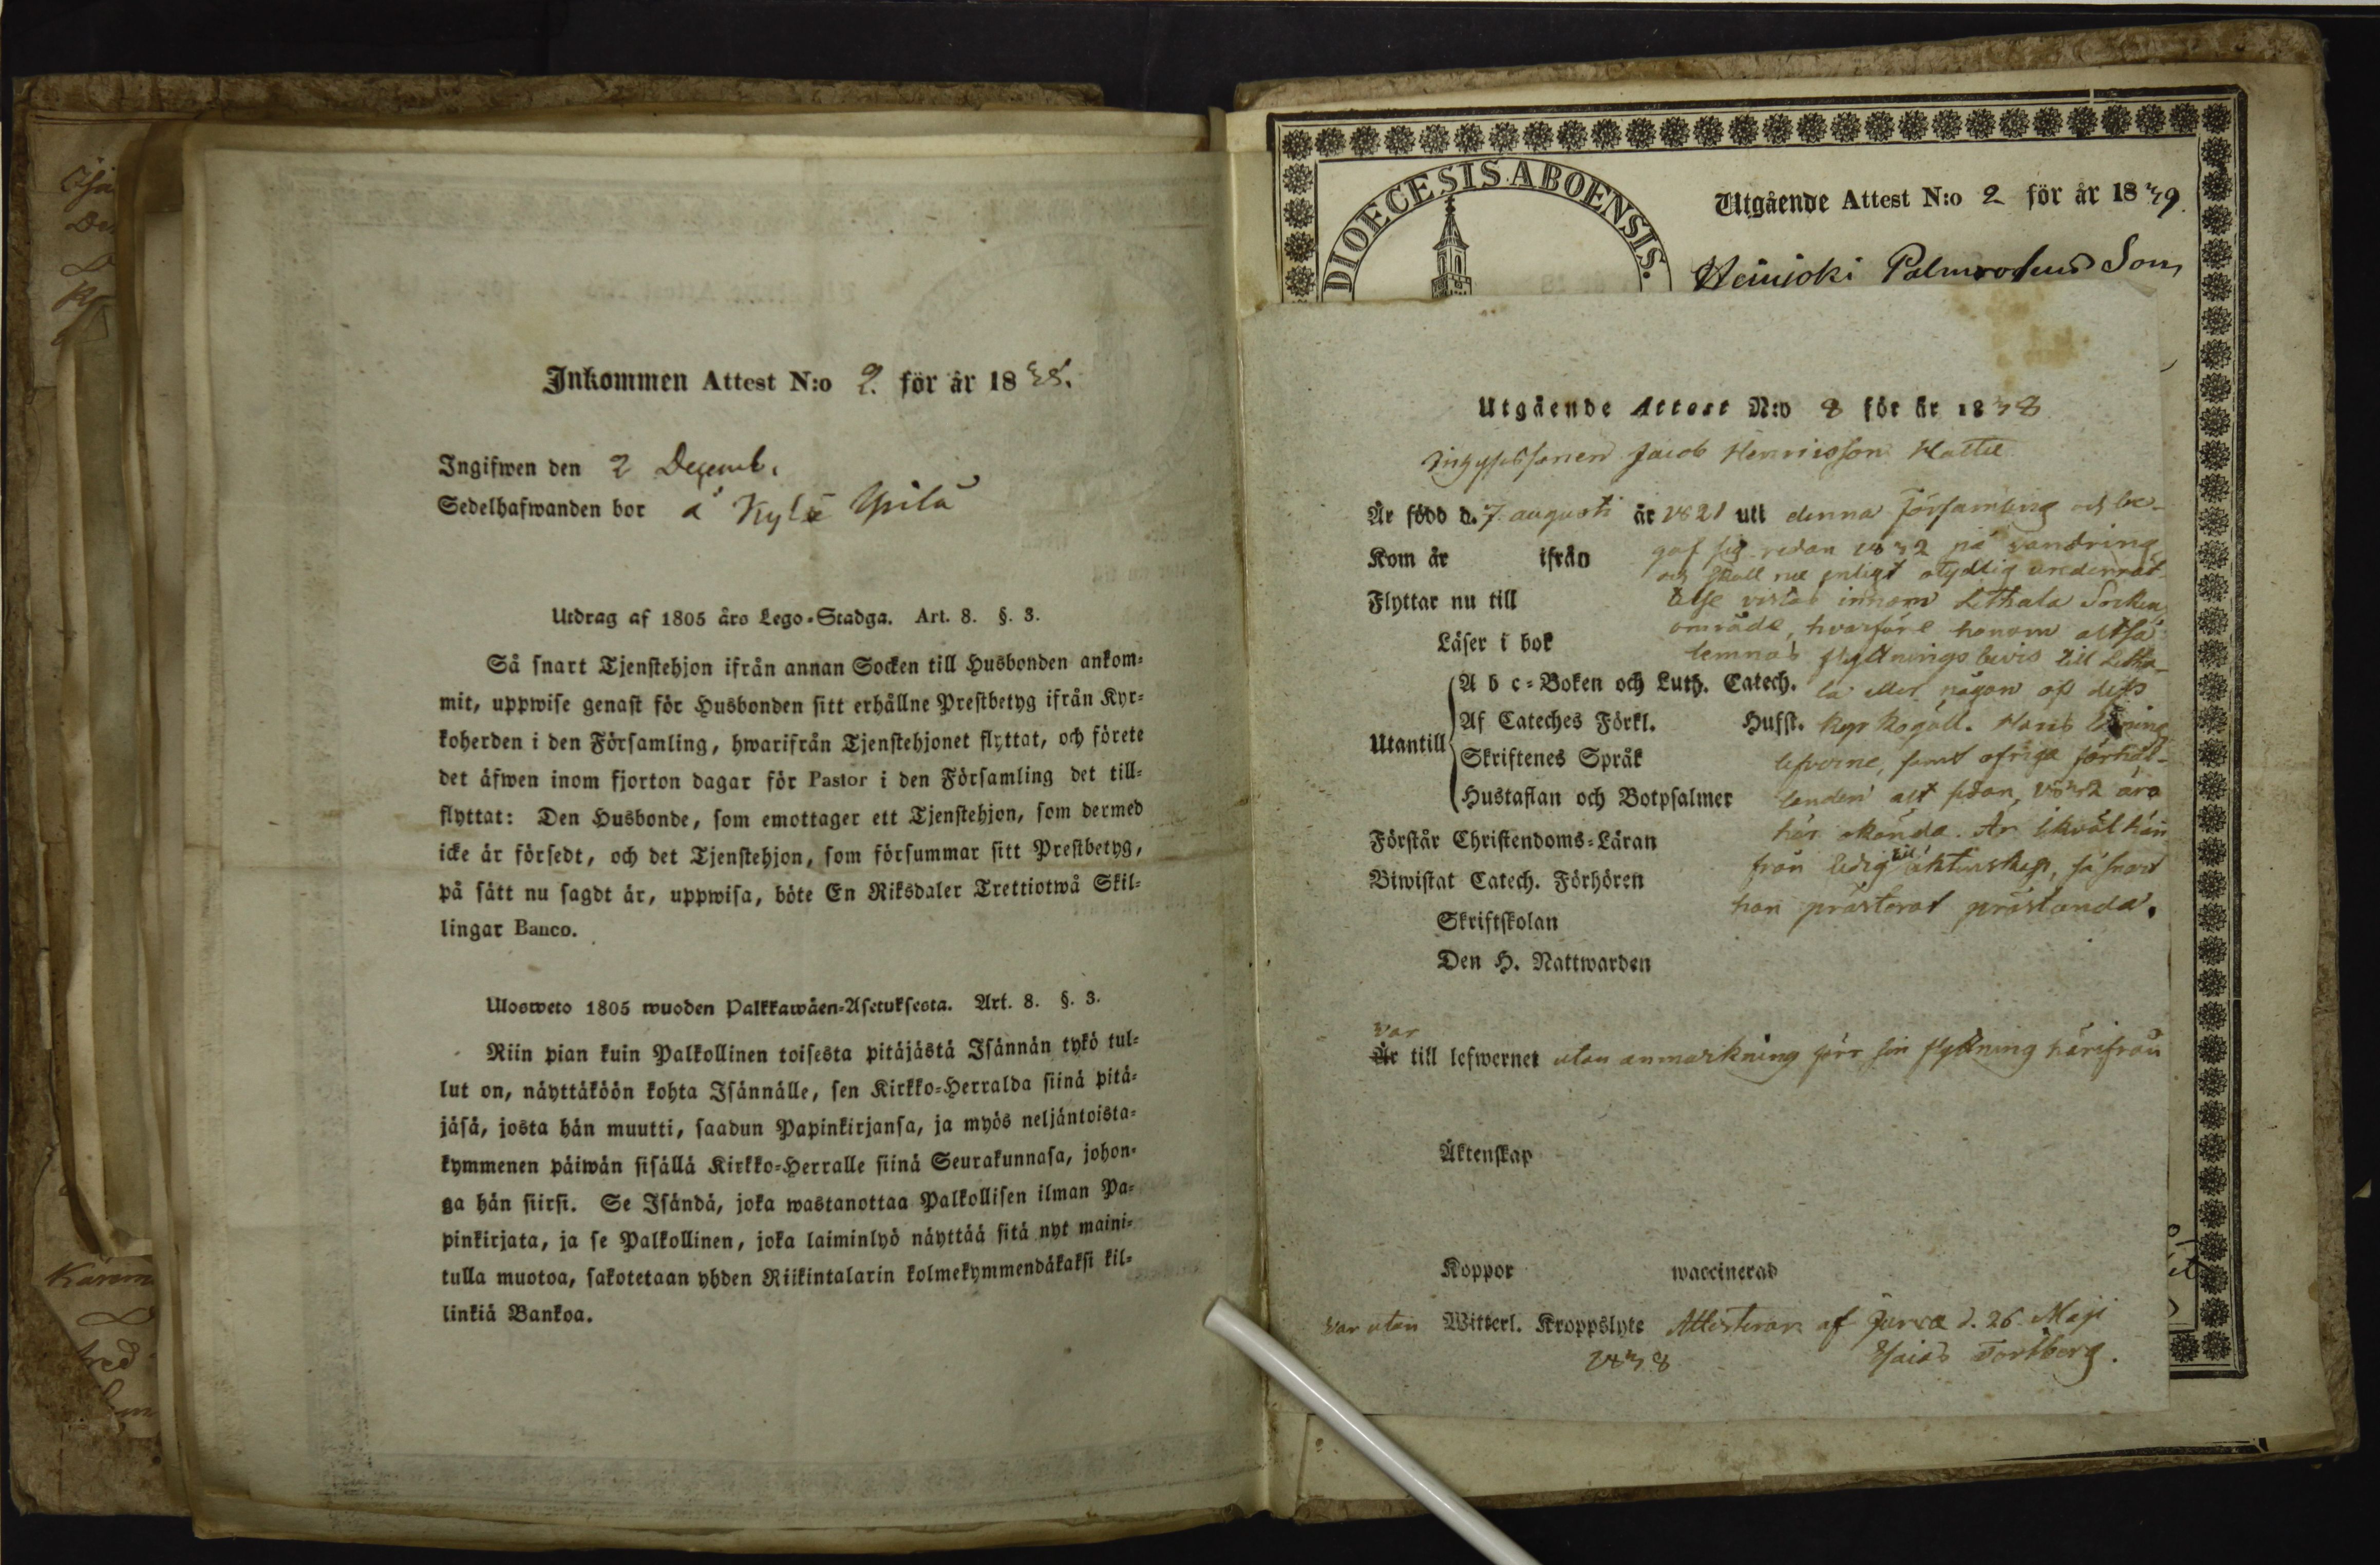 Inkommen Attest N:o 2. för år 1838.
Ingifwen den 2 Decemb.
Sedelhafwanden bor å Kylä
Utdrag af 1805 års Lego-Stadga. Art. 8. §. 3.
Så snart Tjenstehjon ifrån annan Socken till Husbonden ankom-
mit, uppwise genast för Husbonden sitt erhållne Prestbetyg ifrån Kyr-
koherden i den Församling, hwarifrån Tjenstehjonet flyttat, och förete
det äfwen inom fjorton dagar för Pastor i den Församling det till-
flyttat: Den Husbonde, som emottager ett Tjenstehjon, som dermed
icke är försedt, och det Tjenstehjon, som försummar sitt Prestbetyg,
på sätt nu sagdt är, uppwisa, böte En Riksdaler Trettiotwå Skil-
lingar Banco.
Ulosweto 1805 wuoden Palkkawäen-Asetuksesta. Art. 8. §. 3.
Niin pian kuin Palkollinen toisesta pitäjästä Isännän tykö tul-
lut on, näyttäköön kohta Isännälle, sen Kirkko-Herralda siinä pitä-
jäsä, josta hän muutti, saadun Papinkirjansa, ja myös neljäntoista-
kymmenen päiwän sisällä Kirkko-Herralle siinä Seurakunnasa, johon-
ga hän siirsi. Se Isändä, joka wastanottaa Palkollisen ilman Pa-
pinkirjata, ja se Palkollinen, joka laiminlyö näyttää sitä nyt maini-
tulla muotoa, sakotetaan yhden Riikintalarin kolmekymmendäkaksi kil-
linkiä Bankoa.
DIOECESIS ABOENSIS.
Utgående Attest N:o 2 för år 1839.
Heinioki Son
Utgående Attest N:o 8 för år 1838
Jacob Henricsson
Är född d. 7 augusti år 1821 uti denna församling och be-
Kom år ifrån gaf sig redan 1832 på vandring
och skall nu enligt otydlig underrät-
Flyttar nu till telse vistas innom Lethala Socken
område, hvarföre honom altså
Läser i bok lemnas flyttningsbevis till Letha-
A b c-Boken och Luth. Catech. la eller någon af dess
Af Cateches Förkl. Husst. Hans läsning
Utantill
Skriftenes Språk lefverne, samt öfriga förhål-
Hustaflan och Botpsalmer landen alt sedan 1832 äro
Förstår Christendoms-Läran här okända. Är likväl här-
från ledig till äktenskap, så snart
Biwistat Catech. Förhören
han prästerat prästanda.
Skriftskolan
Den H. Nattwarden
var
Är till lefwernet utan anmärkning förr sin flyttning härifrån
Äktenskap
Koppor waccinerad
Var utan Witterl. Kroppslyte Attesterar af Jurva d. 26 Maji
1838 Esaias Forsberg.